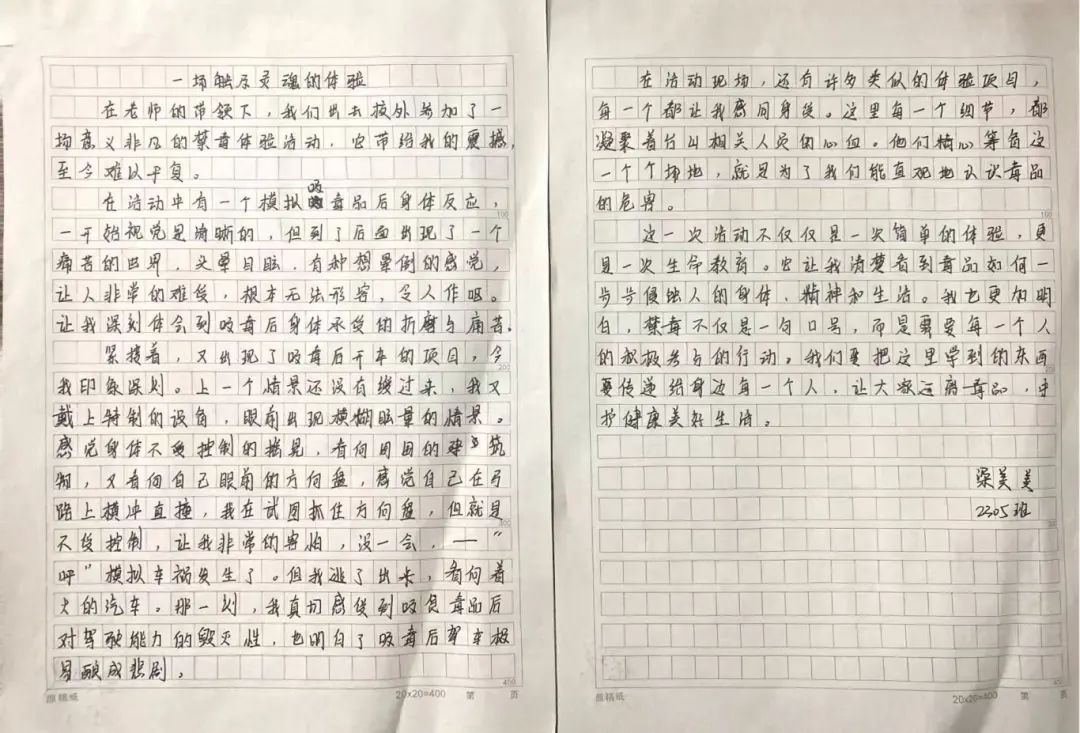 一场触及灵魂的体验
在老师的带领下，我们出去校外参加了一
场意义非凡的禁毒体验活动，它带给我的震撼，
至今难以平复。
在活动中有一个模拟吸毒品后身体反应，
一开始视觉是清晰的，但到了后面出现了一个
痛苦的世界，头晕目眩，有种想晕倒的感觉，
让人非常的难受，根本无法形容，令人作呕。
让我深刻体会到吸毒后身体承受的折磨与痛苦。
紧接着，又出现了吸毒后开车的项目，令
我印象深刻。上一个情景还没有缓过来，我又
戴上特制的设备，眼前出现模糊眩晕的情景。
感觉身体不受控制的摇晃，看向周围的建筑
物，又看向自己眼前的方向盘，感觉自己在马
路上横冲直撞，我在试图抓住方向盘，但就是
不受控制，让我非常的害怕，没一会，——“
呯”模拟车祸发生了。但我逃了出来，看向着
火的汽车。那一刻，我真切感受到吸食毒品后
对驾驶能力的毁灭性，也明白了吸毒后驾车极
易酿成悲剧。
100
200
300
400
原稿纸
20×20=400
第 页
在活动现场，还有许多类似的体验项目，
每一个都让我感同身受。这里每一个细节，都
凝聚着台山相关人员的心血。他们精心筹备这
一个个场地，就是为了我们能直观地认识毒品
的危害。
这一次活动不仅仅是一次简单的体验，更
是一次生命教育。它让我清楚看到毒品如何一
步步侵蚀人的身体、精神和生活。我也更加明
白，禁毒不仅是一句口号，而是需要每一个人
的积极参与的行动。我们要把这里学到的东西
要传递给身边每一个人，让大家远离毒品，守
护健康美好生活。
梁美美
2305班
100
原稿纸
20×20=400
第 页